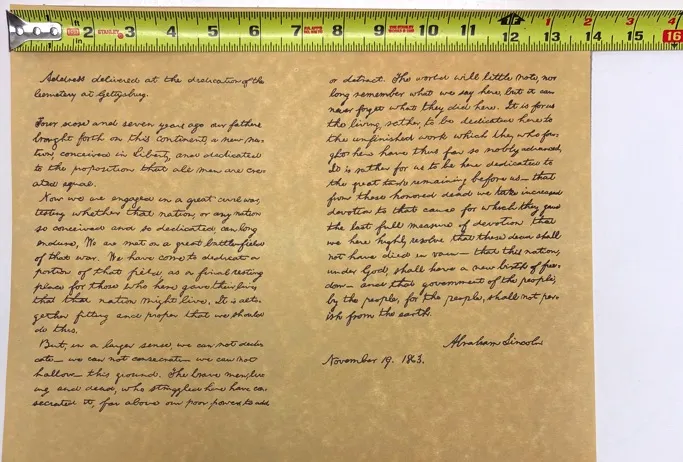 2 STANLEY 3 4 5 6 7 8 9 10 11 12 13 14 15 16
1 2 3 4
Address delivered at the dedication of the
Cemetery at Gettysburg.
Four score and seven years ago our fathers
brought forth on this continent, a new na-
tion, conceived in liberty, and dedicated
to the proposition that all men are cre-
ated equal.
Now we are engaged in a great civil war,
testing whether that nation, or any nation
so conceived and so dedicated, can long
endure. We are met on a great battle field
of that war. We have come to dedicate a
portion of that field, as a final resting
place for those who here gave their lives
that that nation might live. It is alto-
gether fitting and proper that we should
do this.
But, in a larger sense, we can not dedi-
cate— we can not consecrate— we can not
hallow— this ground. The brave men, liv-
ing and dead, who struggled here have con-
secrated it, far above our poor power to add
or detract. The world will little note, nor
long remember what we say here, but it can
never forget what they did here. It is for us
the living, rather, to be dedicated here to
the unfinished work which they who fou-
ght here have thus far so nobly advanced.
It is rather for us to be here dedicated to
the great task remaining before us— that
from these honored dead we take increased
devotion to that cause for which they gave
the last full measure of devotion— that
we here highly resolve that these dead shall
not have died in vain— that this nation,
under God, shall have a new birth of free-
dom— and that government of the people,
by the people, for the people, shall not per-
ish from the earth.
Abraham Lincoln
November 19. 1863.